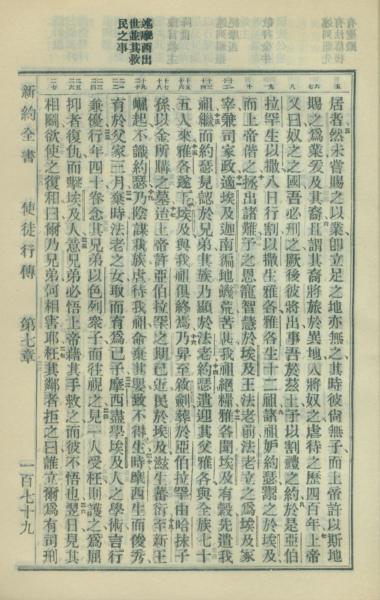 述摩西出
世並其救
民之事
居者然未嘗賜之以業卽立足之地亦無之其時彼尙無子而上帝許以斯地
賜之爲業爰及其裔且謂其裔將旅於異地人將奴之虐待之歷四百年上帝
又曰奴之之國吾必刑之厥後彼將出事吾於茲土予以割禮之約於是亞伯
拉罕生以撒八日行割以撒生雅各雅各生十二祖諸祖妒約瑟鬻之於埃及
而上帝偕之拯出諸難予之恩寵智慧於埃及王法老前法老立之爲埃及冢
宰兼司家政適埃及迦南徧地饑荒苦甚我祖絕糧雅各聞埃及有穀先遣我
祖繼而約瑟見認於兄弟其族乃顯於法老約瑟遣迎其父雅各與全族七十
五人來雅各遂下埃及與我祖俱終焉乃舁至敘劍葬於亞伯拉罕由哈抹子
孫以金所購之墓迨上帝許亞伯拉罕之期已近民於埃及滋生蕃衍至新王
崛起不識約瑟乃陰謀我族虐待我祖命棄其嬰致不得生時摩西生而俊秀
育於父家三月棄時法老之女取而育爲己子摩西盡學埃及人之學術言行
兼優行年四十眷念其兄弟以色列衆子而往視之見一人受枉則護之爲屈
抑者復仇而擊埃及人意兄弟必悟上帝藉其手救之而彼不悟也翌日見其
相鬭欲使之復和曰爾乃兄弟何相害耶枉其鄰者拒之曰誰立爾爲有司刑
新約全書 使徒行傳 第七章 一百七十九